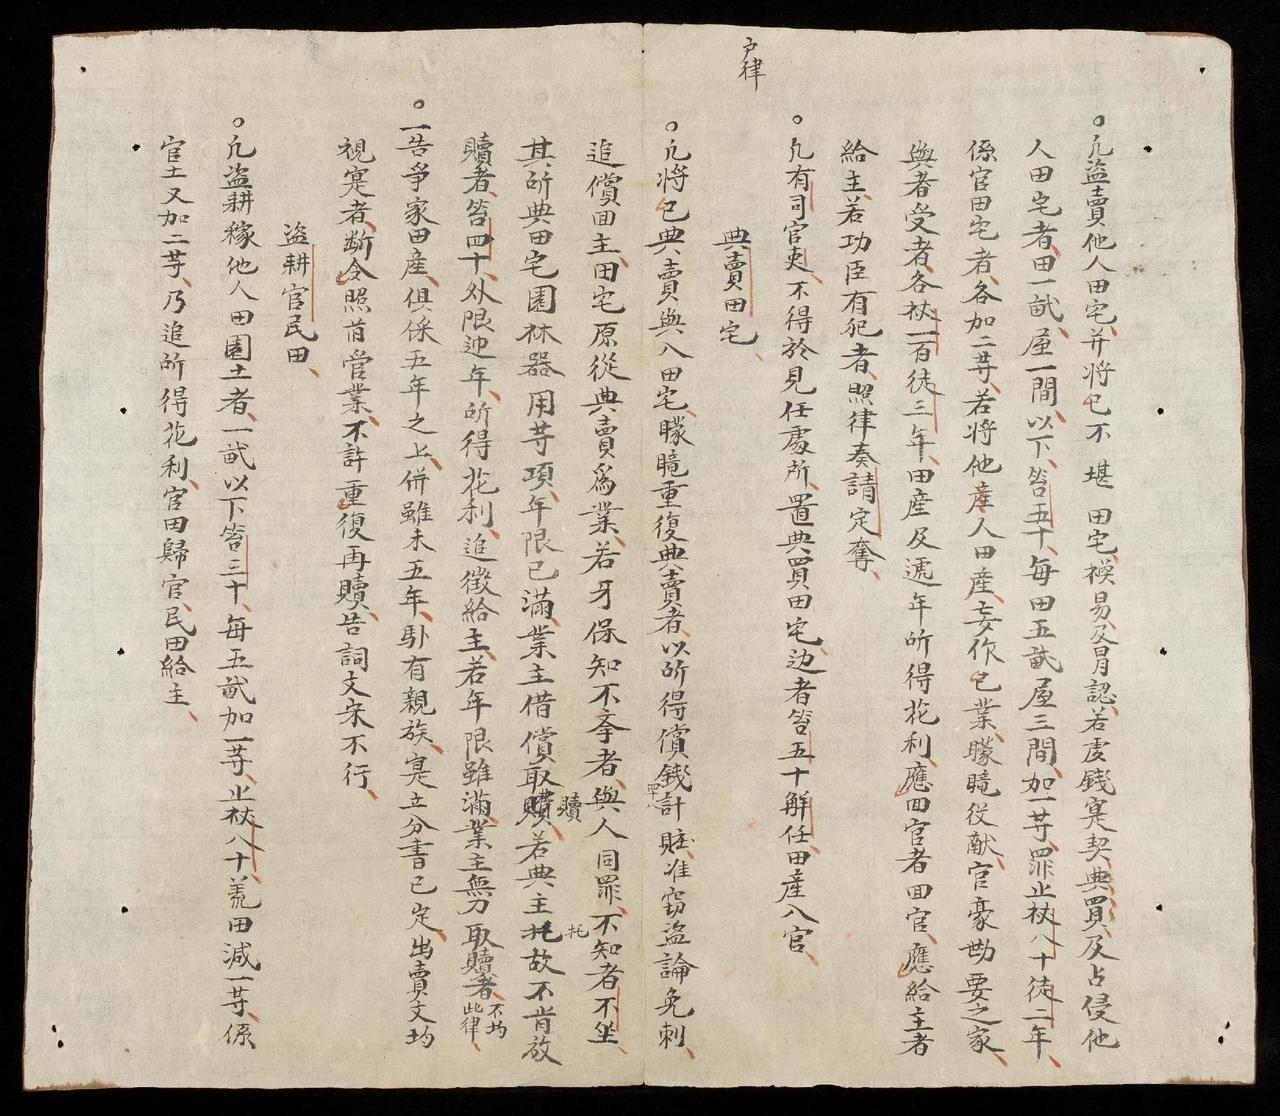 戶律
○凡盜賣他人田宅并將己不堪田宅換易及冒認若虛錢寔契典買及占侵他
人田宅者田一畝屋一間以下笞五十每田五畝屋三間加一等罪止杖八十徒二年
係官田宅者各加二等若將他產人田產妄作己業朦朧投献官豪勢要之家
與者受者各杖一百徒三年田產及遞年所得花利應囬官者囬官應給主者
給主若功臣有犯者照律奏請定奪
○凡有司官吏不得於見任處所置典買田宅边者笞五十觧任田產入官
典賣田宅
○凡將己典賣與人田宅朦朧重復典賣者以所得價錢計賍准竊盜論免刺
追價囬主田宅原從典賣爲業若牙保知不李者與人同罪不知者不坐
其所典田宅園林器用等項年限已滿業主借價取贖若典主托故不肯放
贖者笞四十外限迎年所得花利追徵給主若年限雖滿業主無力取贖者不均此律
○一告爭家田產俱係五年之上併雖未五年馱有親族寔立分書已定出賣文均
視寔者断令照前管業不許重復再贖告詞文宋不行
盜耕官民田
○凡盜耕稼他人田園土者一畝以下笞三十每五畝加一等止杖八十荒田減一等係
官土又加二等乃追所得花利官田歸官民田給主